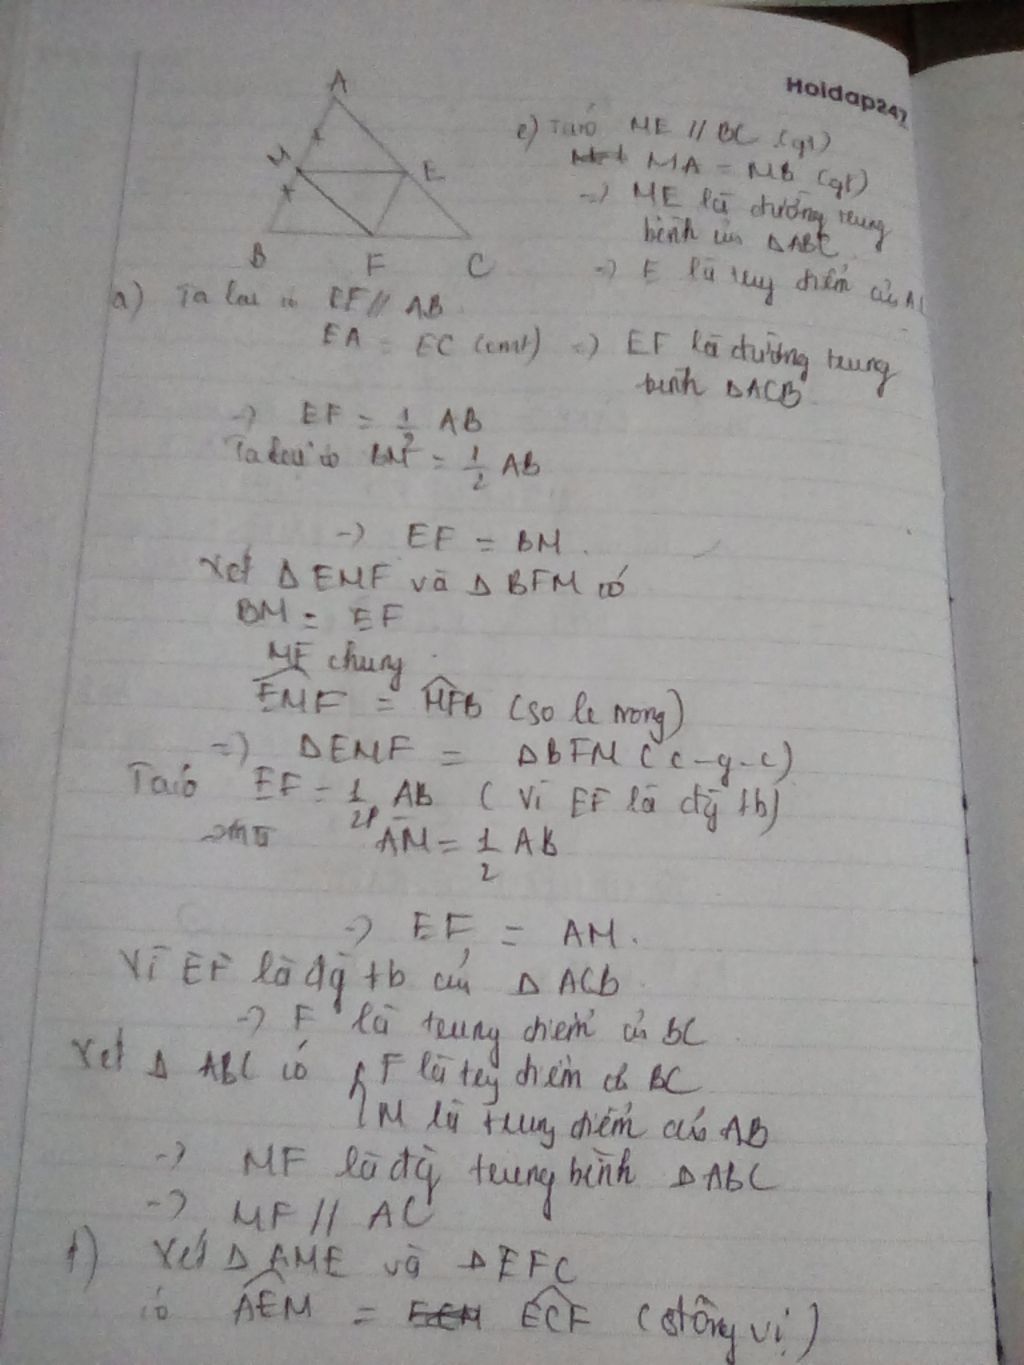 Hoidap247
A
M
E
B
F
C
e) Ta có ME // BC (gt)
MA = MB (gt)
=> ME là đường trung
bình của ΔABC
=> E là trung điểm của AC
a) Ta lại có EF // AB
EA = EC (cmt) => EF là đường trung
bình ΔACB
=> EF = 1/2 AB
Ta lại có BM = 1/2 AB
=> EF = BM.
Xét Δ EMF và Δ BFM có
BM = EF
MF chung
EMF = MFB (so le trong)
=> ΔEMF = ΔBFM (c-g-c)
Ta có EF = 1/2 AB (vì EF là đg tb)
AM = 1/2 AB
=> EF = AM.
Vì EF là đg tb của Δ ACB
=> F là trung điểm của BC
Xét Δ ABC có { F là trg điểm của BC
M là trung điểm của AB
=> MF là đg trung bình ΔABC
=> MF // AC
f) Xét Δ AME và Δ EFC
có AEM = ECF (đồng vị)